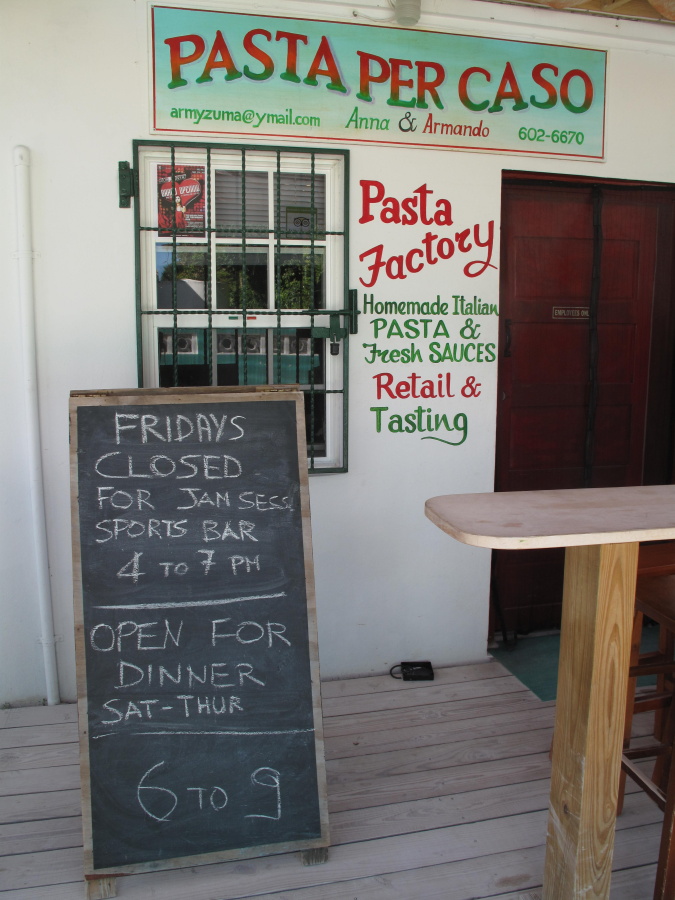 PASTA PER CASO
armyzuma@ymail.com Anna & Armando 602-6670
Pasta
Factory
Homemade Italian
PASTA &
Fresh SAUCES
Retail &
Tasting
EMPLOYEES ONLY
FRIDAYS
CLOSED
FOR JAM SESS
SPORTS BAR
4 TO 7 PM
OPEN FOR
DINNER
SAT-THUR
6 TO 9